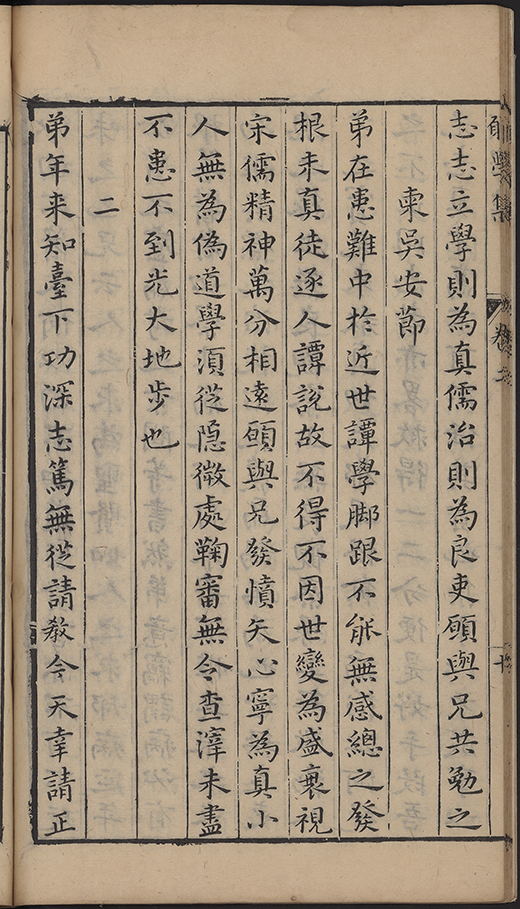 志志立學則為真儒治則為良吏願與兄共勉之
柬吳安節
弟在患難中於近世譚學脚跟不能無感總之發
根未真徒逐人譚說故不得不因世變為盛衰視
宋儒精神萬分相遠願與兄發憤矢心寧為真小
人無為偽道學須從隐微處鞠審無令查滓未盡
不患不到光大地步也
二
弟年来知臺下功深志篤無從請教今天幸請正